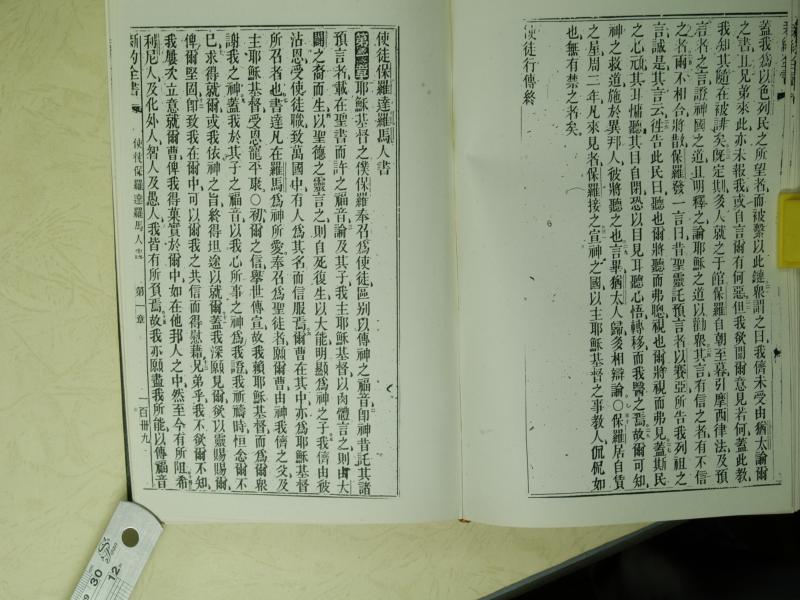 蓋我為以色列民之所望者而被繫以此鏈眾謂之曰我儕未受由猶太論爾
之書且兄弟來此亦未報我或自言爾有何惡但我欲聞爾意見若何蓋此教
我知其隨在被誹矣既定期多人就之于館保羅自朝至暮引摩西律法及預
言者之言證神國之道且明釋之論耶穌之道以勸眾其言有信之者有不信
之者兩不相合將散保羅發一言曰昔聖靈託預言者以賽亞所告我列祖之
言誠是其言云徃告此民曰聽也爾將聽而弗聰視也爾將視而弗見蓋斯民
之心頑其耳慵聽其目自閉恐以目見耳聽心悟轉移而我醫之焉故爾可知
神之救道施於異邦人彼將聽之也言畢猶太人歸多相辯論〇保羅居自賃
之屋周二年凡來見者保羅接之宣神之國以主耶穌基督之事教人侃侃如
也無有禁之者矣
使徒行傳終
使徒保羅達羅馬人書
第壹章耶穌基督之僕保羅奉召為使徒區別以傳神之福音即神昔託其諸
預言者載在聖書而許之福音論及其子我主耶穌基督以肉體言之則由大
闢之裔而生以聖德之靈言之則自死復生以大能明顯為神之子我儕由彼
沾恩受使徒職致萬國中有人為其名而信服焉爾曹在其中亦為耶穌基督
所召者也書達凡在羅馬為神所愛奉召為聖徒者願爾曹由神我儕之父及
主耶穌基督受恩寵平康〇初爾之信舉世傳宣故我賴耶穌基督而為爾眾
謝我之神蓋我於其子之福音以我心所事之神為我證我祈禱時恒念爾不
已求得就爾或我依神之旨終得坦途以就爾蓋我深願見爾欲以靈賜賜爾
俾爾堅固即致我在爾中可以爾我之共信而得慰藉兄弟乎我不欲爾不知
我屢次立意就爾曹俾我得菓實於爾中如在他邦人之中然至今有所阻希
利尼人及化外人智人及愚人我皆有所負焉故我亦願盡我所能以傳福音
新約全書 使徒保羅達羅馬人書 第一章 一百卅九
30
12